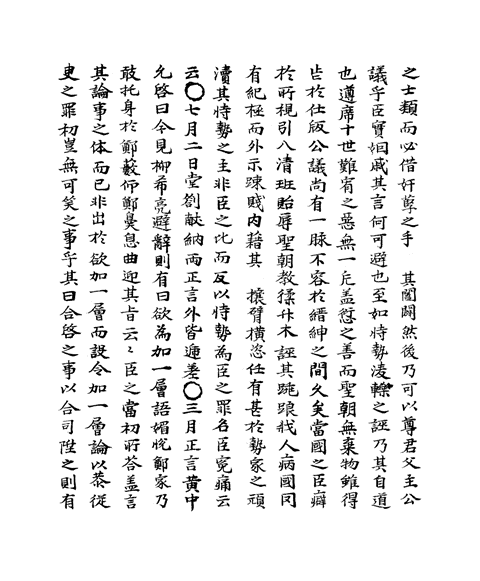 之士類而必借奸尊之手　其闔闢然後乃可以尊君父主公
議乎臣實姻戚其言何可避也至如恃勢凌轢之誣乃其自道
也遵席十世難有之惡無一片盖愆之善而聖朝無棄物雖得
齿於仕版公議尚有一脉不容於縉紳之間久矣當國之臣癖
於所視引入清班貽辱聖朝教猱升木誣其踪跡我人病國罔
有紀極而外示踈賤内藉其　攘臂橫恣任有甚於勢家之頑
瀆其恃勢之主非臣之比而反以恃勢為臣之罪名臣寃痛云
云○七月二日堂劄献納兩正言外皆遞差○三月正言黄中
允啓曰今見柳希亮避辭則有曰欲為加一層語媚悅鄭家乃
敢托身於鄭藪仰鄭鼻息曲迎其旨云〻臣之當初所答盖言
其論事之体而已非出於欲加一層而設令加一層論以恭從
吏之罪初豈無可笑之事乎其曰合啓之事以合司陞之則有